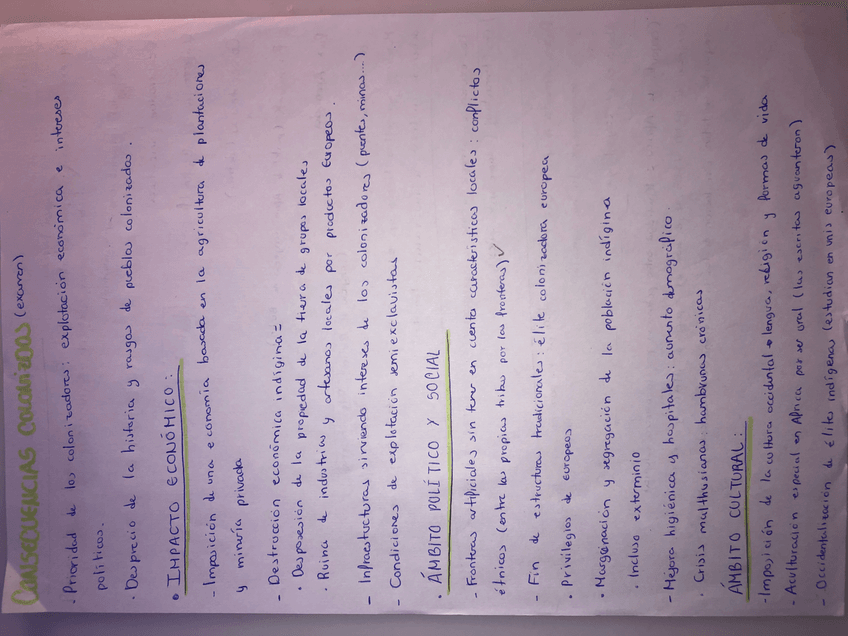 CONSECUENCIAS COLONIZADOS (examen)
· Prioridad de los colonizadores: explotación económica e intereses
políticos.
· Desprecio de la historia y rasgos de pueblos colonizados.
• IMPACTO ECONÓMICO:
- Imposición de una economía basada en la agricultura de plantaciones
y minería privada
- Destrucción económica indígina:
• Desposesión de la propiedad de la tierra de grupos locales
• Ruina de industrias y artesanos locales por productos Europeos.
- Infraestructuras sirviendo intereses de los colonizadores (puentes, minas...)
- Condiciones de explotación semiexclavistas
• ÁMBITO POLÍTICO Y SOCIAL
- Fronteras artificiales sin tener en cuenta características locales: conflictos
étnicos (entre las propias tribus por las fronteras) ✓
- Fin de estructuras tradicionales: élite colonizadora europea
• Privilegios de europeos
• Marginación y segregación de la población indígina
• Incluso exterminio
- Mejora higiénica y hospitales: aumento demográfico
• Crisis malthusianas: hambrunas crónicas
ÁMBITO CULTURAL:
- Imposición de la cultura occidental → lengua, religión y formas de vida
• Aculturación especial en África por ser oral (las escritas aguantaron)
- Occidentalización de élites indígenas (estudian en unis europeas)